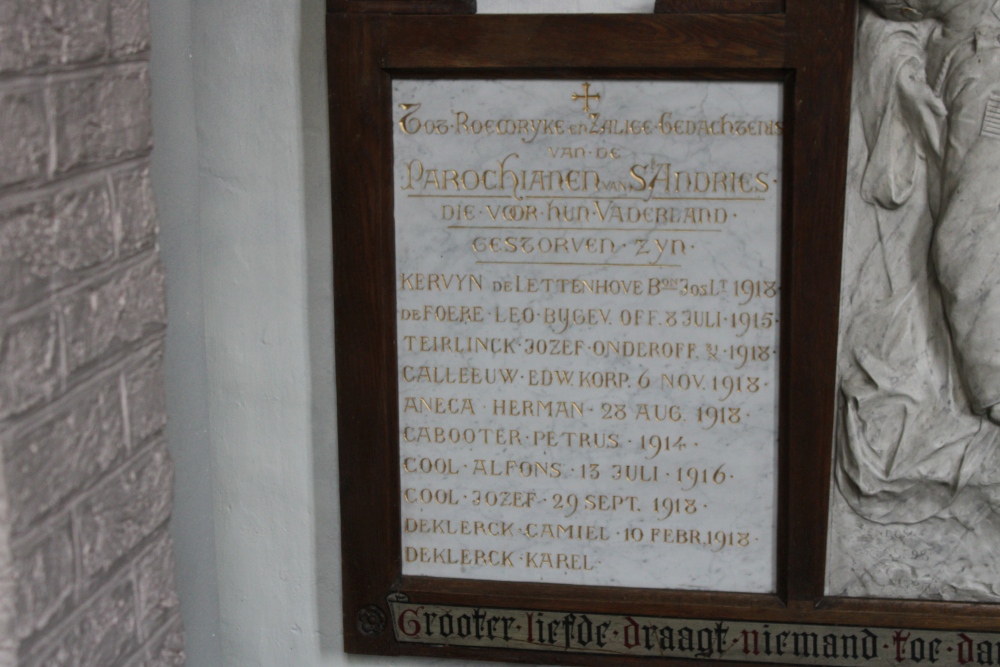 Tot · Roemryke en Zalige · Gedachtenis
van · de
Parochianen van St Andries ·
die · voor · hun · Vaderland ·
gestorven · zyn ·
KERVYN DE LETTENHOVE Bon Jos Lt 1918
DE FOERE · LEO · BYGEV. OFF. 8 JULI · 1915 ·
TEIRLINCK · JOZEF · ONDEROFF. 1918 ·
CALLEEUW · EDW. KORP. 6 NOV. 1918 ·
ANECA · HERMAN · 28 AUG. 1918 ·
CABOOTER · PETRUS · 1914 ·
COOL · ALFONS · 13 JULI · 1916 ·
COOL · JOZEF · 29 SEPT. 1918 ·
DEKLERCK · CAMIEL · 10 FEBR. 1918 ·
DEKLERCK · KAREL ·
Grooter · liefde · draagt · niemand · toe · da